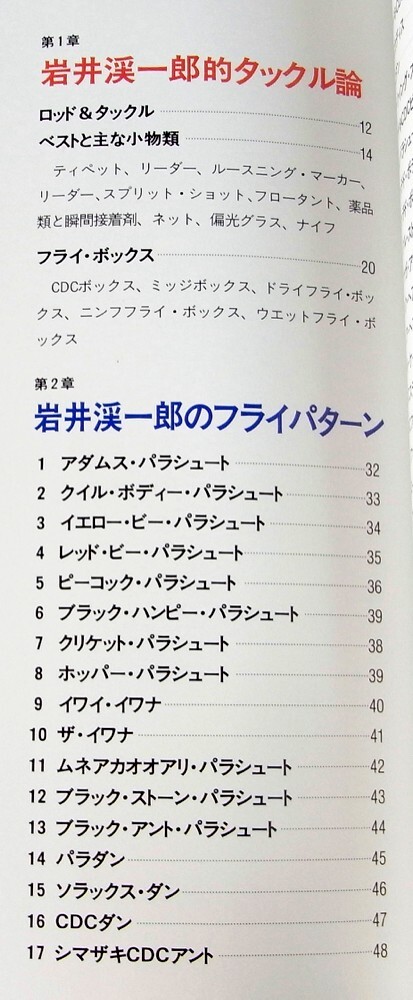 第1章
岩井渓一郎的タックル論
ロッド&タックル 12
ベストと主な小物類 14
ティペット、リーダー、ルースニング・マーカー、
リーダー、スプリット・ショット、フロータント、薬品
類と瞬間接着剤、ネット、偏光グラス、ナイフ
フライ・ボックス 20
CDCボックス、ミッジボックス、ドライフライ・ボッ
クス、ニンフフライ・ボックス、ウエットフライ・ボ
ックス
第2章
岩井渓一郎のフライパターン
1 アダムス・パラシュート 32
2 クイル・ボディー・パラシュート 33
3 イエロー・ビー・パラシュート 34
4 レッド・ビー・パラシュート 35
5 ピーコック・パラシュート 36
6 ブラック・ハンピー・パラシュート 39
7 クリケット・パラシュート 38
8 ホッパー・パラシュート 39
9 イワイ・イワナ 40
10 ザ・イワナ 41
11 ムネアカオオアリ・パラシュート 42
12 ブラック・ストーン・パラシュート 43
13 ブラック・アント・パラシュート 44
14 パラダン 45
15 ソラックス・ダン 46
16 CDCダン 47
17 シマザキCDCアント 48